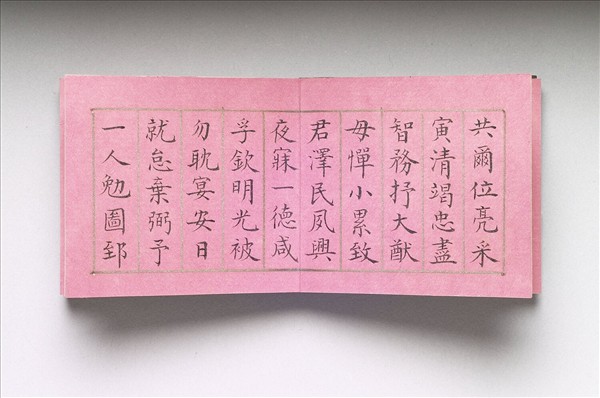 共爾位亮采
寅清竭忠盡
智務抒大猷
毋憚小累致
君澤民夙興
夜寐一德咸
孚欽明光被
勿耽宴安日
就怠棄弼予
一人勉圖郅